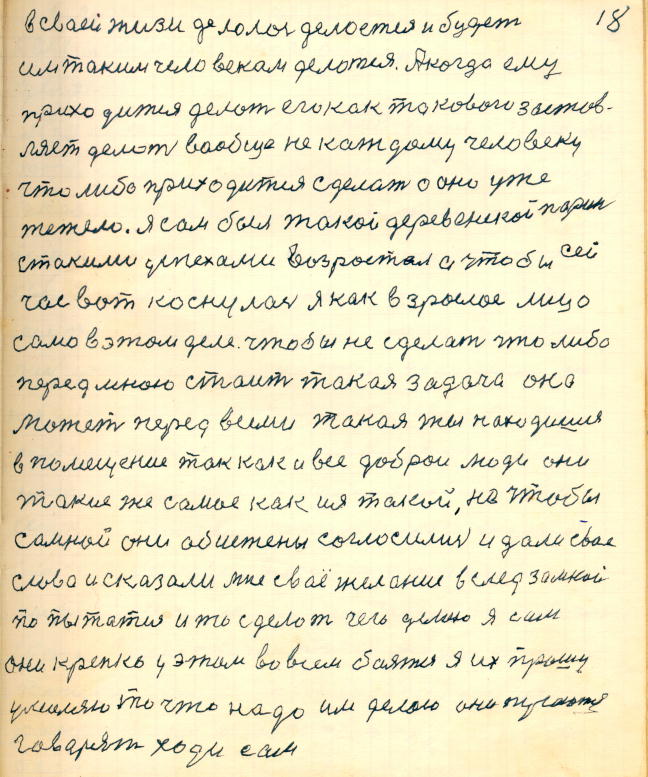 18
в сваей жизи делолос делоется и будет
им таким чело векам делотся. А когда ему
прихо дится делот его как такового застов-
ляет делот ваобще не каждому человеку
что либо приходится сделат а оно уже
тежело. я сам был такой деревенской парин
стакими успехами возростал а чтобы сей
час вот коснулас я как взрослое лицо
само в этом деле. чтобы не сделат что либо
передмною стаит такая задача она
может перед всеми такая ты находишся
в помещение так как и все доброи люди они
такие же самое как и я такой, на чтобы
самной они обиетены согласилис и дали свае
слова и сказали мне сваё желание вслед замной
по пытатся и то сделот чего делою я сам
они крепко у этом во всем боятся я их прошу
умоляю то что надо им делою они пугаются
говарят ходи сам